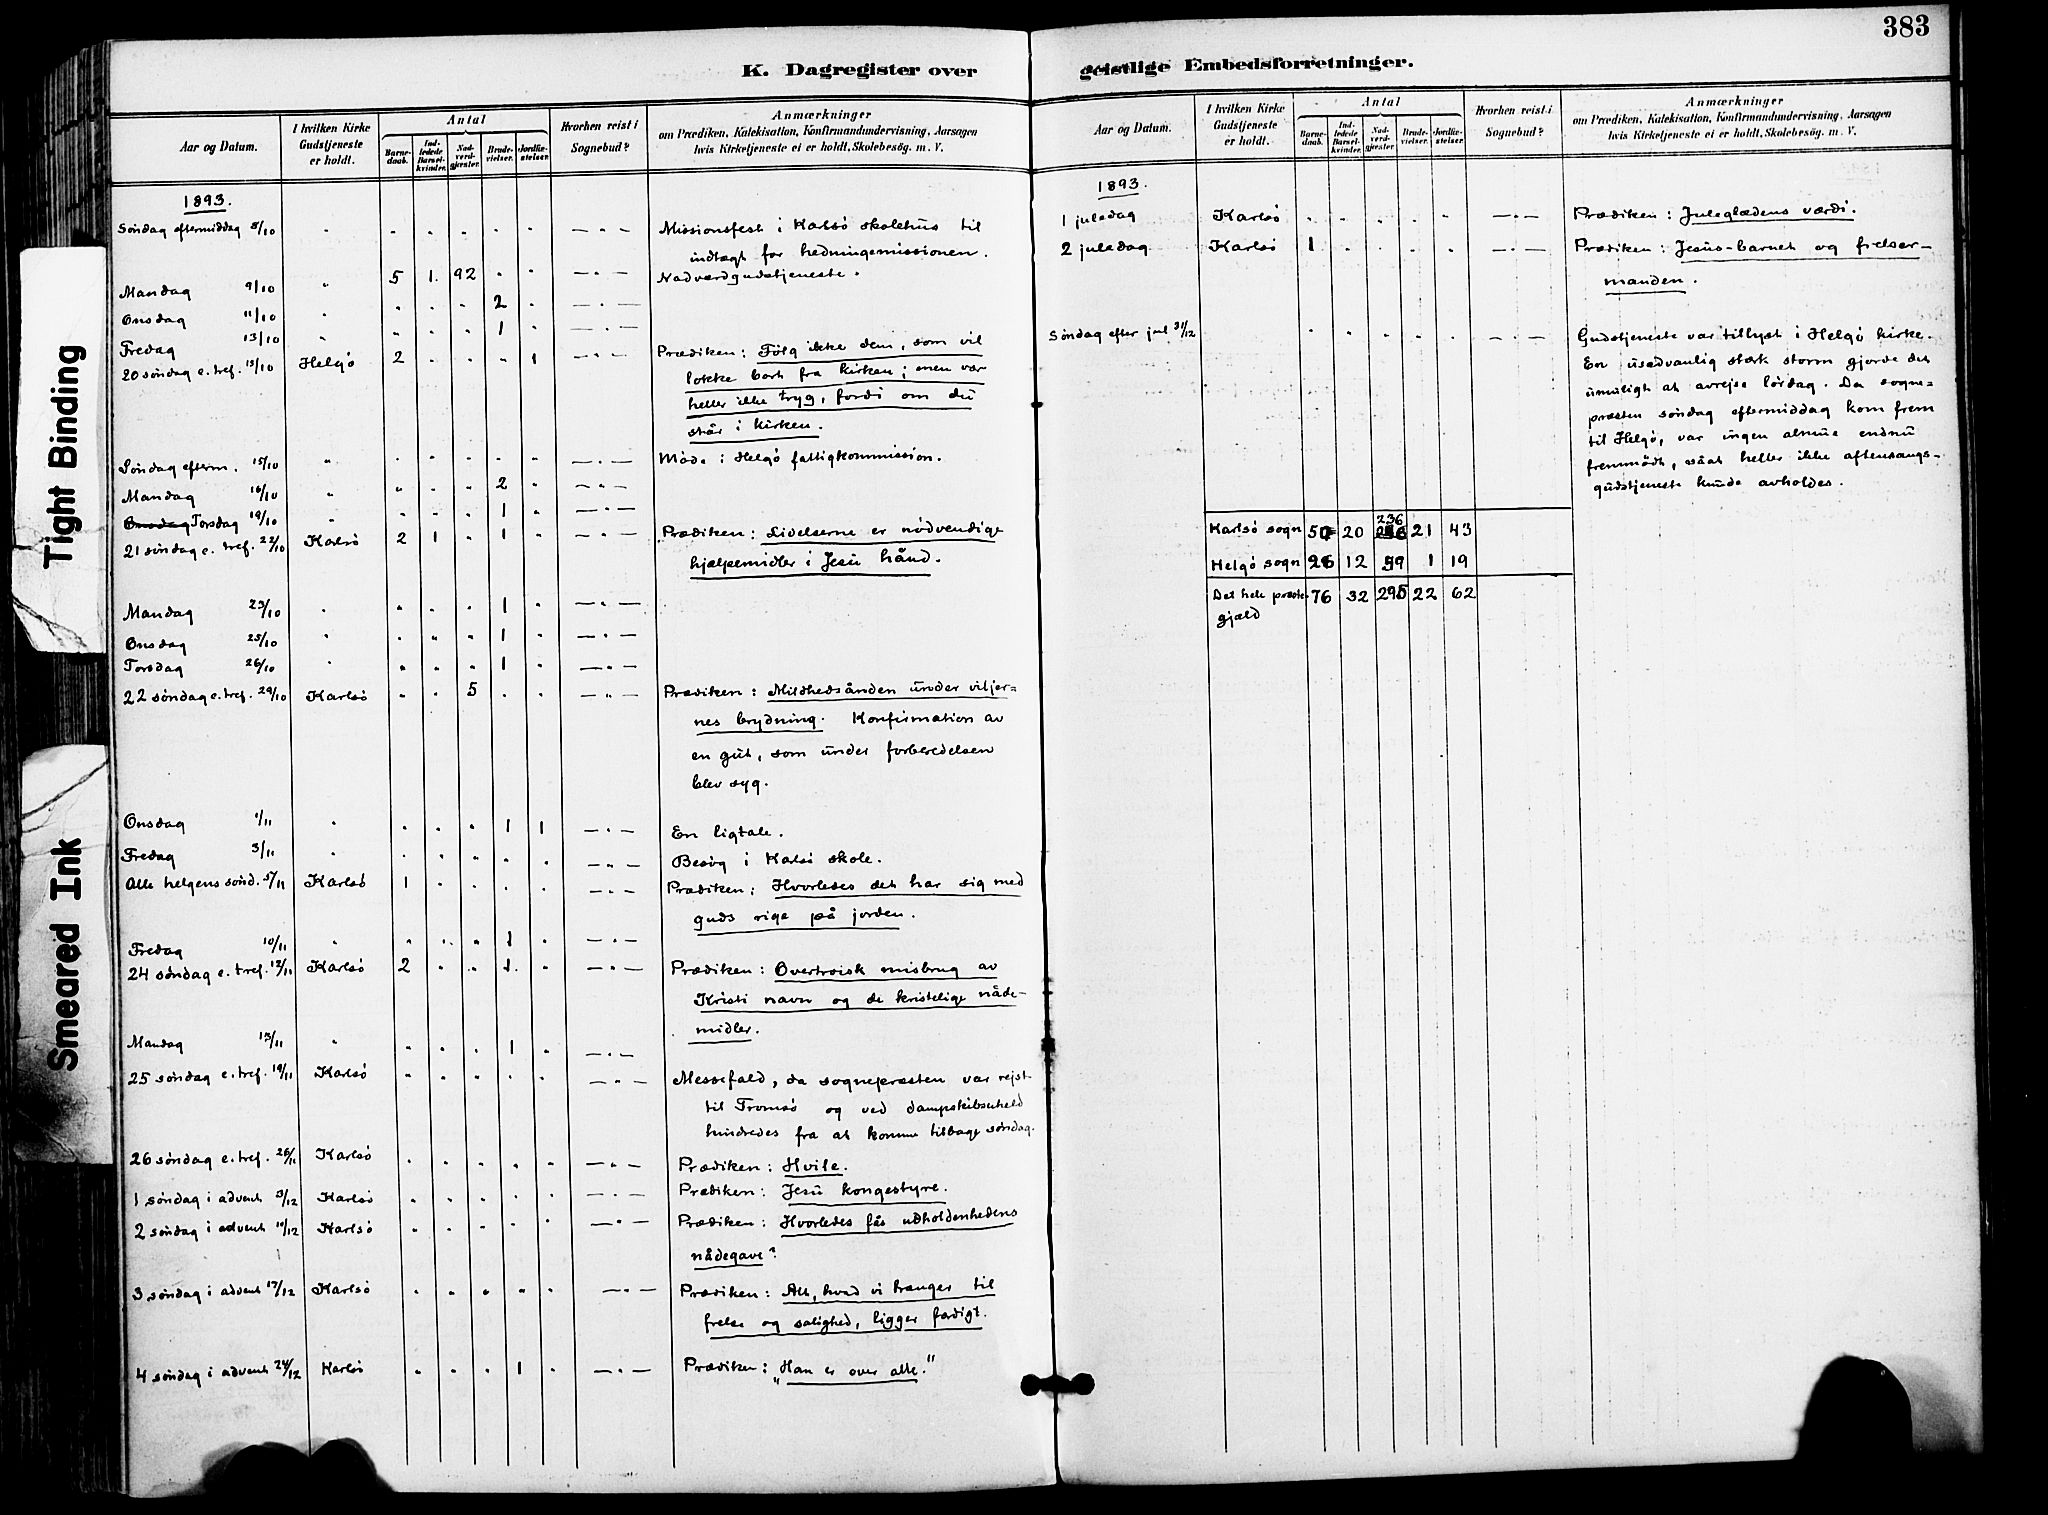 383
K. Dagregister over
geistlige Embedsforretninger.
Tight Binding
Smeared Ink
Aar og Datum.
I hvilken Kirke
Gudstjeneste
er holdt.
Antal
Barne-
daab.
Ind-
ledede
Barsel-
kvinder.
Nad-
verd-
gjæster.
Brude-
vielser.
Jordfæ-
stelser.
Hvorhen reist i
Sognebud?
Anmærkninger
om Prædiken, Katekisation, Konfirmandundervisning, Aarsagen
hvis Kirketjeneste ei er holdt, Skolebesög. m. V.
1893.
Søndag eftermiddag 8/10 " " " " " " — " — Missionsfest i Karlsø skolehus til
indtægt for hedningemissionen.
Mandag 9/10 " 5 1. 92 " " — " — Nadverdgudstjeneste.
Onsdag 11/10 " " " " 2 " — " —
Fredag 13/10 " " " " 1 " — " —
20 søndag e. tref. 15/10 Helgø 2 " " " 1 — " — Prædiken: Følg ikke dem, som vil
lokke bort fra kirken; men vær
heller ikke tryg, fordi om du
står i kirken.
Søndag efterm. 15/10 " " " " " " — " — Møde i Helgø fattigkommission.
Mandag 16/10 " " " " 2 " — " —
Onsdag Torsdag 19/10 " " " " 1 " — " —
21 søndag e. tref. 22/10 Karlsø 2 1 " 1 " — " — Prædiken: Lidelserne er nødvendige
hjælpemidler i Jesu hånd.
Mandag 23/10 " " " " 1 " — " —
Onsdag 25/10 " " " " 1 " — " —
Torsdag 26/10 " " " " 1 " — " —
22 søndag e. tref. 29/10 Karlsø " " 5 " " — " — Prædiken: Mildhedsånden under viljer-
nes brydning. Konfirmation av
en gut, som under forberedelsen
blev syg.
Onsdag 1/11 " " " " 1 1 — " — En ligtale.
Fredag 3/11 " " " " " " — " — Besøg i Karlsø skole.
Alle helgens sønd. 5/11 Karlsø 1 " " " " — " — Prædiken: Hvorledes det har sig med
guds rige på jorden.
Fredag 10/11 " " " " 1 " — " —
24 søndag e. tref. 12/11 Karlsø 2 " " 1 " — " — Prædiken: Overtroisk misbrug av
Kristi navn og de kristelige nåde-
midler.
Mandag 13/11 " " " " 1 " — " —
25 søndag e. tref. 19/11 Karlsø " " " " " — " — Messefald, da sognepræsten var rejst
til Tromsø og ved dampskibsuheld
hindredes fra at komme tilbage søndag.
26 søndag e. tref. 26/11 Karlsø " " " " " — " — Prædiken: Hvile.
1 søndag i advent 3/12 Karlsø " " " " " — " — Prædiken: Jesu kongestyre.
2 søndag i advent 10/12 Karlsø " " " " " — " — Prædiken: Hvorledes fås udholdenhedens
nådegave?
3 søndag i advent 17/12 Karlsø " " " " " — " — Prædiken: Alt, hvad vi trænger til
frelse og salighed, ligger færdigt.
4 søndag i advent 24/12 Karlsø " " " 1 " — " — Prædiken: "Han er over alle."
Aar og Datum.
I hvilken Kirke
Gudstjeneste
er holdt.
Antal
Barne-
daab.
Ind-
ledede
Barsel-
kvinder.
Nad-
verd-
gjæster.
Brude-
vielser.
Jordfæ-
stelser.
Hvorhen reist i
Sognebud?
Anmærkninger
om Prædiken, Katekisation, Konfirmandundervisning, Aarsagen
hvis Kirketjeneste ei er holdt, Skolebesög. m. V.
1893.
1 juledag Karlsø " " " " " — " — Prædiken: Juleglædens værdi.
2 juledag Karlsø 1 " " " " — " — Prædiken: Jesus-barnet og frelser-
manden.
Søndag efter jul 31/12 " " " " " — " — Gudstjeneste var tillyst i Helgø kirke.
En usædvanlig stærk storm gjorde det
umuligt at avrejse lørdag. Da sogne-
præsten søndag eftermiddag kom frem
til Helgø, var ingen almue endnu
fremmødt, såat heller ikke aftensangs-
gudstjeneste kunde avholdes.
Karlsø sogn 50 20 236 21 43
Helgø sogn 26 12 59 1 19
Det hele præste- 76 32 295 22 62
gjæld